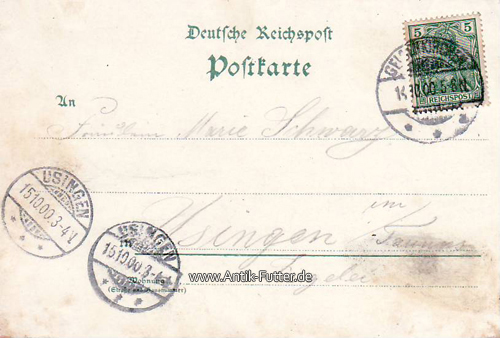 Deutsche Reichspost
Postkarte
5 5
REICHSPOST
14.10.00.5-6N.
An
Fräulein Marie Schwarz
USINGEN
15.10.00.3-4N.
im
Usingen Taunus
USINGEN
15.10.00.3-4N.
www.Antik-Futter.de
Wohnung